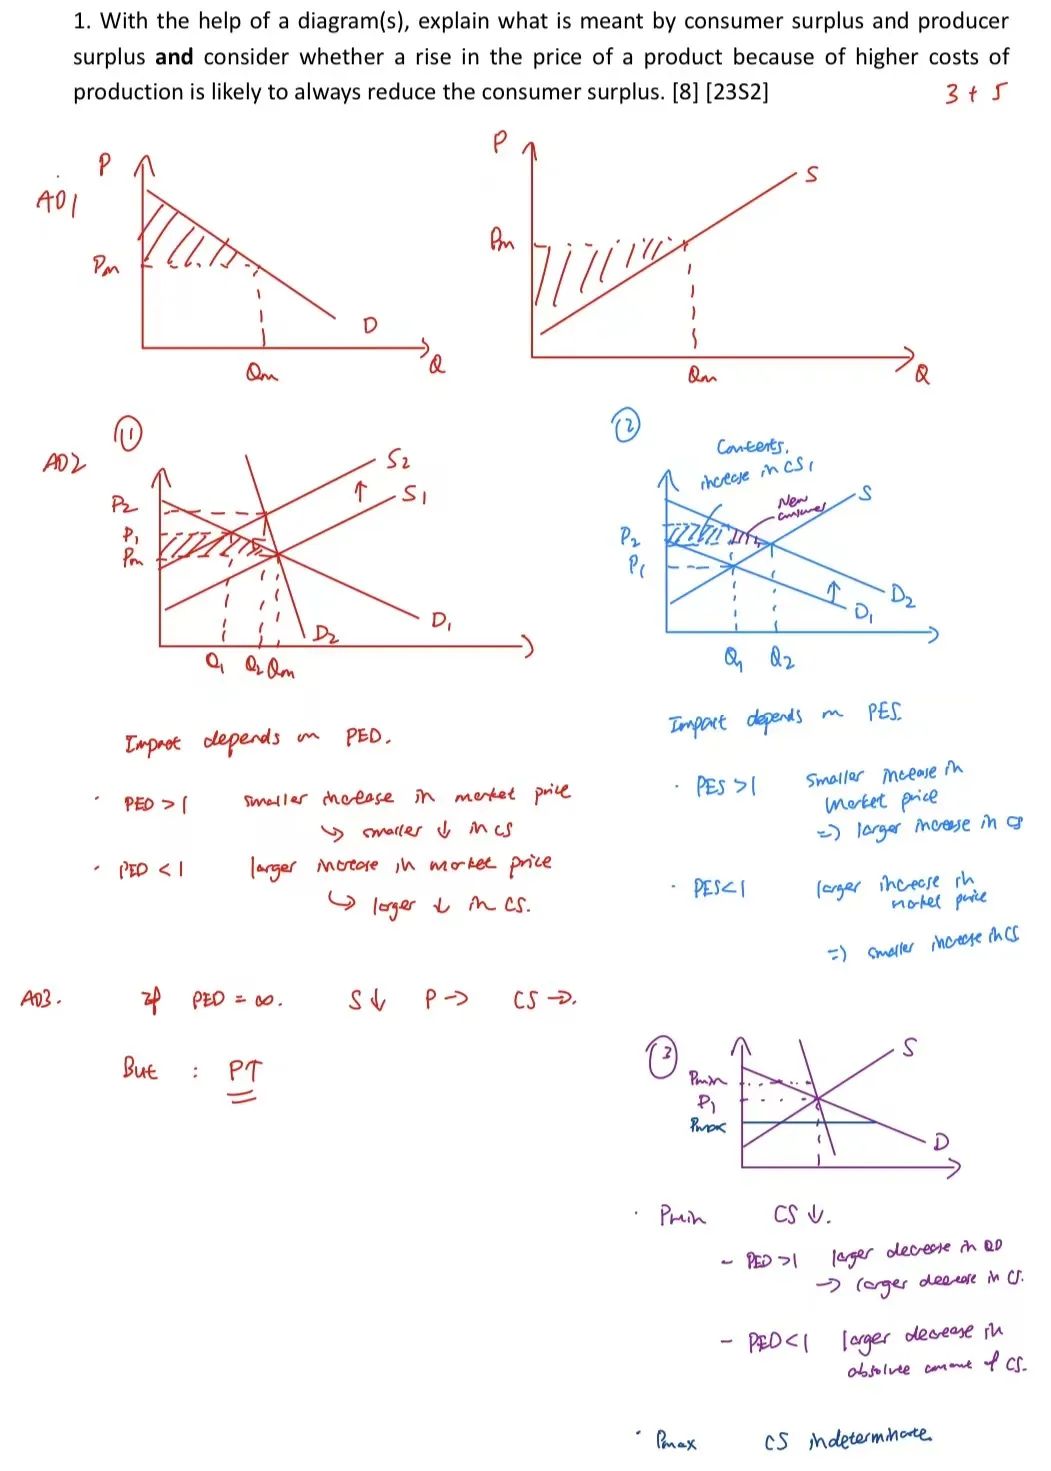 1. With the help of a diagram(s), explain what is meant by consumer surplus and producer
surplus and consider whether a rise in the price of a product because of higher costs of
production is likely to always reduce the consumer surplus. [8] [23S2]
3 + 5
AO1
P
Pm
D
Qm
Q
P
S
Pm
Qm
Q
AO2
①
S2
S1
P2
P1
Pm
D1
D2
Q1 Q2 Qm
Impact depends on PED.
· PED > 1 smaller increase in market price
↳ smaller ↓ in CS
· PED < 1 larger increase in market price
↳ larger ↓ in CS.
②
increase in CS,
New
consumer
S
P2
P1
D2
D1
Q1 Q2
Impact depends on PES.
· PES > 1 smaller increase in
market price
=) larger increase in CS
· PES < 1 larger increase in
market price
=) smaller increase in CS
AO3. If PED = ∞. S↓ P→ CS→.
But : P↑
③
S
Pmin
P1
Pmax
D
· Pmin CS ↓.
- PED > 1 larger decrease in QD
→ larger decrease in CS.
- PED < 1 larger decrease in
absolute amount of CS.
· Pmax CS indeterminate.